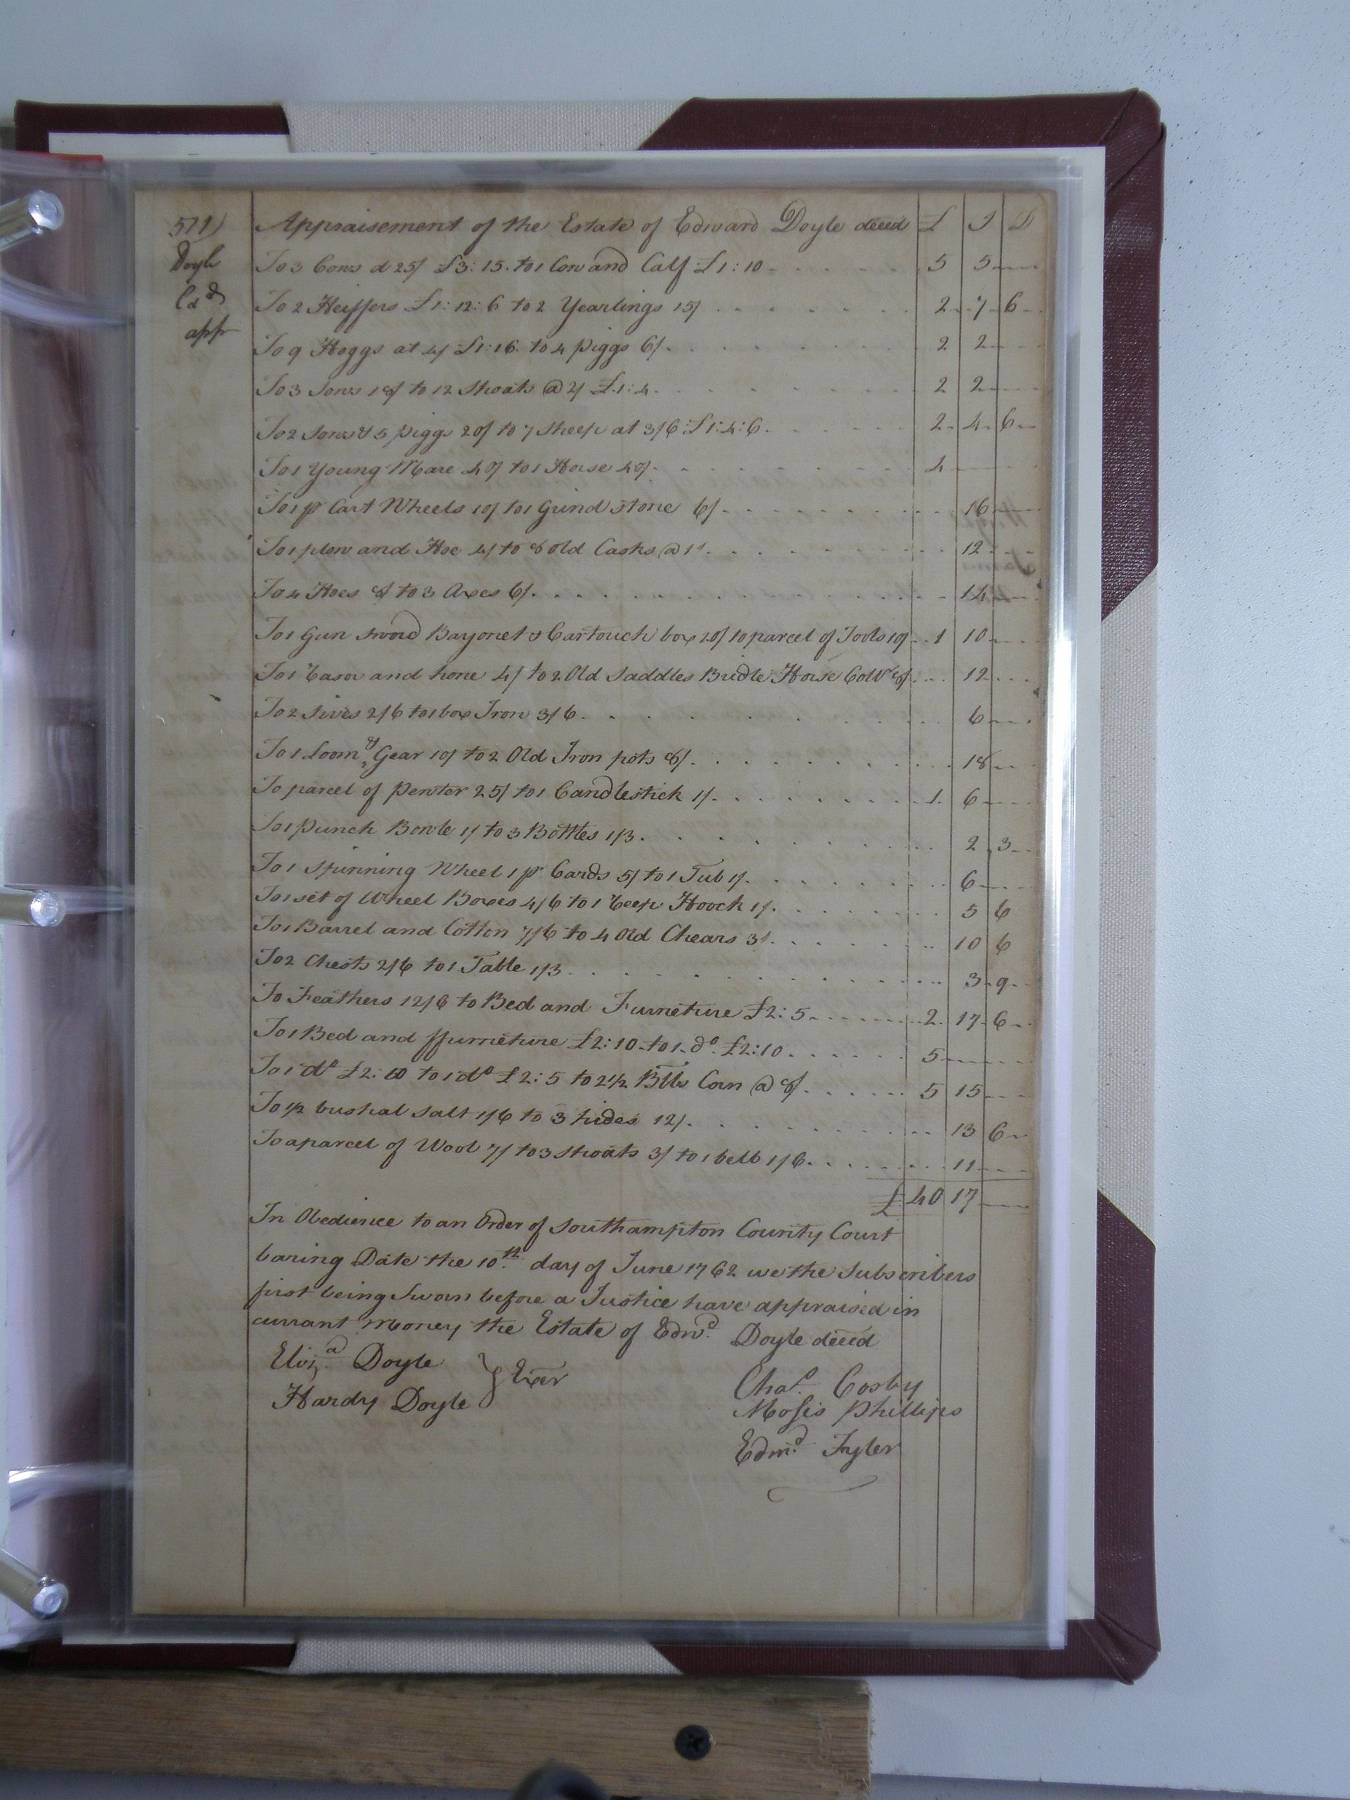 571)
Doyle
Edwd
appr
Appraisement of the Estate of Edward Doyle deced £ S D
To 3 Cows @ 25/ £3:15. to 1 Cow and Calf £1:10 5 5
To 2 Heiffers £1:12:6 to 2 Yearlings 15/ 2 7 6
To 9 Hoggs at 4/ £1:16. to 4 piggs 6/. 2 2
To 3 Sows 18/ to 12 Shoats @ 2/ £1:4. 2 2
To 2 Sows & 5 piggs 20/ to 7 Sheep at 3/6 £1:4:6. 2 4 6
To 1 Young Mare 40/ to 1 Horse 40/. 4
To 1 pr Cart Wheels 10/ to 1 Grind stone 6/. 16
To 1 plow and Hoe 4/ to 8 old Casks @ 1s. 12
To 4 Hoes 8/ to 3 Axes 6/. 14
To 1 Gun Sword Bayonet & Cartouch box 20/ to parcel of Tools 10/ 1 10
To 1 Rasor and hone 4/ to 2 Old Saddles Bridle Horse Collr 8/. 12
To 2 Sives 2/6 to 1 box Iron 3/6. 6
To 1 Loom & Gear 10/ to 2 Old Iron pots 8/. 18
To parcel of Pewter 25/ to 1 Candlestick 1/. 1 6
To 1 punch Bowle 1/ to 3 Bottles 1/3. 2 3
To 1 Spinning Wheel 1 pr Cards 5/ to 1 Tub 1/. 6
To 1 set of Wheel Boxes 4/6 to 1 Reep Hoock 1/. 5 6
To 1 Barrel and Cotton 7/6 to 4 Old Chears 3s. 10 6
To 2 Chests 2/6 to 1 Table 1/3 3 9
To Feathers 12/6 to Bed and Furneture £2:5 2 17 6
To 1 Bed and ffurneture £2:10 to 1 do. £2:10. 5
To 1 do £2:10 to 1 do £2:5 to 2 1/2 Blls Corn @ 8/. 5 15
To 1/2 bushal Salt 1/6 to 3 hides 12/. 13 6
To a parcel of Wool 7/ to 3 Shoats 3/ to 1 bell 1/6. 11
£ 40 17
In Obedience to an Order of Southampton County Court
baring Date the 10th. day of June 1762 we the Subscribers
first being Sworn before a Justice have appraised in
currant Money the Estate of Edwd. Doyle deced
Eliza. Doyle
Hardy Doyle } Exer
Chas. Cosby
Moses Phillips
Edmd. Tyler